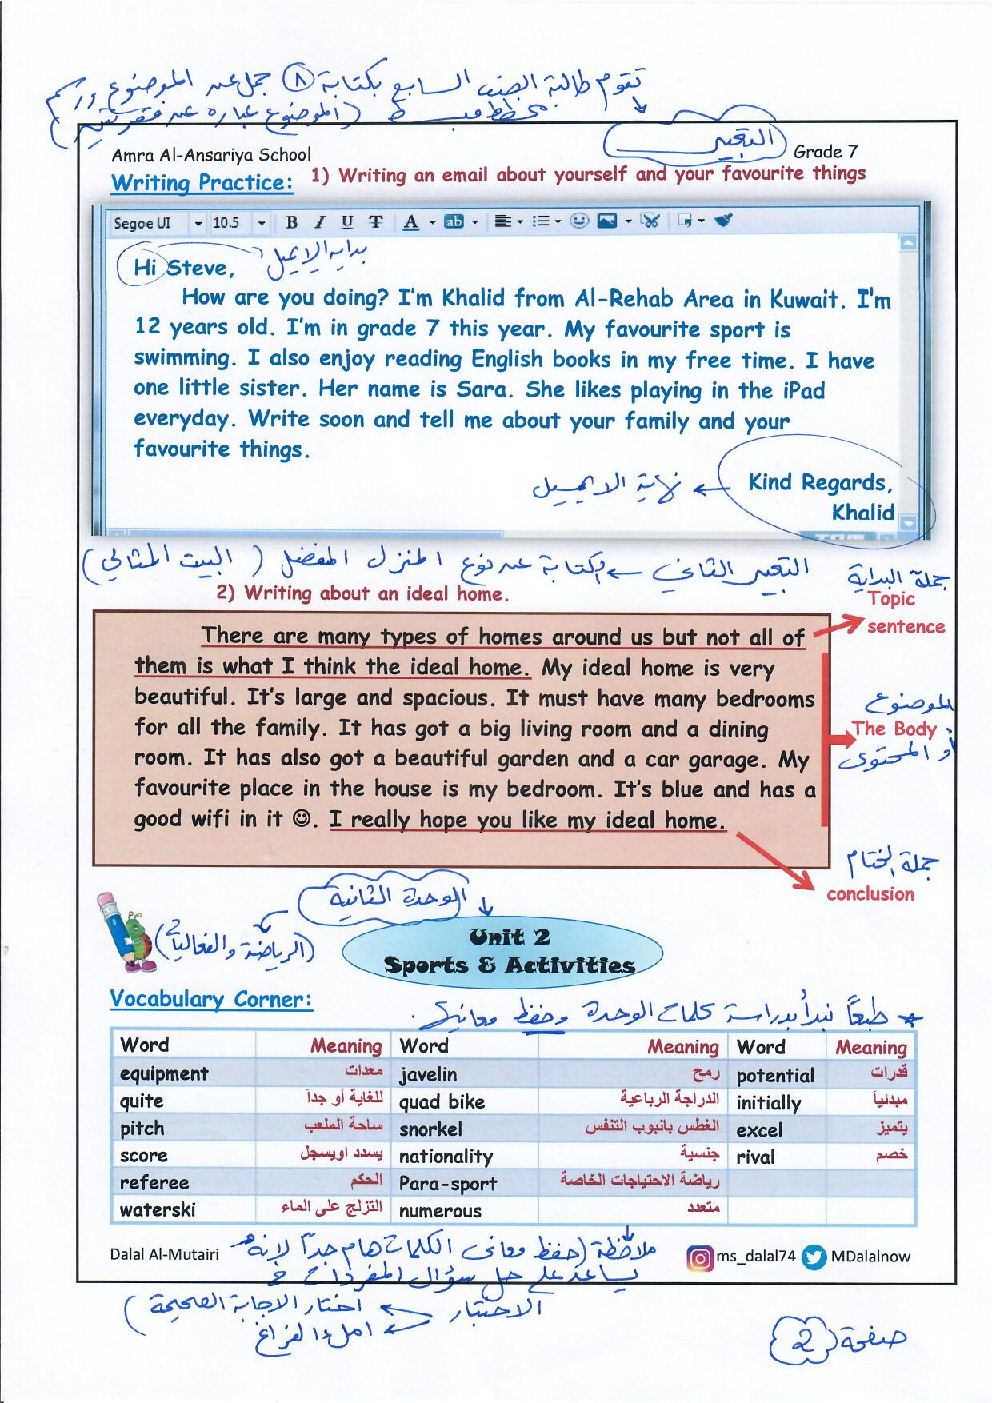 تقوم طالبة الصف السابع بكتابة ٨ جمل عن الموضوع ورسم
مخطط (الموضوع عباره عن فقرتين)
التعبير
Amra Al-Ansariya School
Grade 7
Writing Practice: 1) Writing an email about yourself and your favourite things
Segoe UI 10.5 B I U T A ab
Hi Steve,
بداية الايميل
How are you doing? I'm Khalid from Al-Rehab Area in Kuwait. I'm
12 years old. I'm in grade 7 this year. My favourite sport is
swimming. I also enjoy reading English books in my free time. I have
one little sister. Her name is Sara. She likes playing in the iPad
everyday. Write soon and tell me about your family and your
favourite things.
نهاية الايميل
Kind Regards,
Khalid
التعبير الثاني ← بكتابة عن نوع المنزل المفضل (البيت المثالي)
2) Writing about an ideal home.
جملة البداية
Topic
sentence
There are many types of homes around us but not all of
them is what I think the ideal home. My ideal home is very
beautiful. It's large and spacious. It must have many bedrooms
for all the family. It has got a big living room and a dining
room. It has also got a beautiful garden and a car garage. My
favourite place in the house is my bedroom. It's blue and has a
good wifi in it ☺. I really hope you like my ideal home.
الموضوع
The Body
أو المحتوى
جملة الختام
conclusion
الوحدة الثانية
(الرياضة والفعاليات)
Unit 2
Sports & Activities
Vocabulary Corner:
* طبعاً نبدأ بدراسة كلمات الوحدة وحفظ معانيها.
Word Meaning Word Meaning Word Meaning
equipment معدات javelin رمح potential قدرات
quite للغاية أو جداً quad bike الدراجة الرباعية initially مبدئياً
pitch ساحة الملعب snorkel الغطس بانبوب التنفس excel يتميز
score يسدد اويسجل nationality جنسية rival خصم
referee الحكم Para-sport رياضة الاحتياجات الخاصة
waterski التزلج على الماء numerous متعدد
Dalal Al-Mutairi
ملاحظة (حفظ معاني الكلمات هام جداً لانه
ms_dalal74 MDalalnow
يساعد على حل سؤال المفردات في
الاختبار ← اختار الاجابة الصحيحة
← املء الفراغ)
صفحة 2